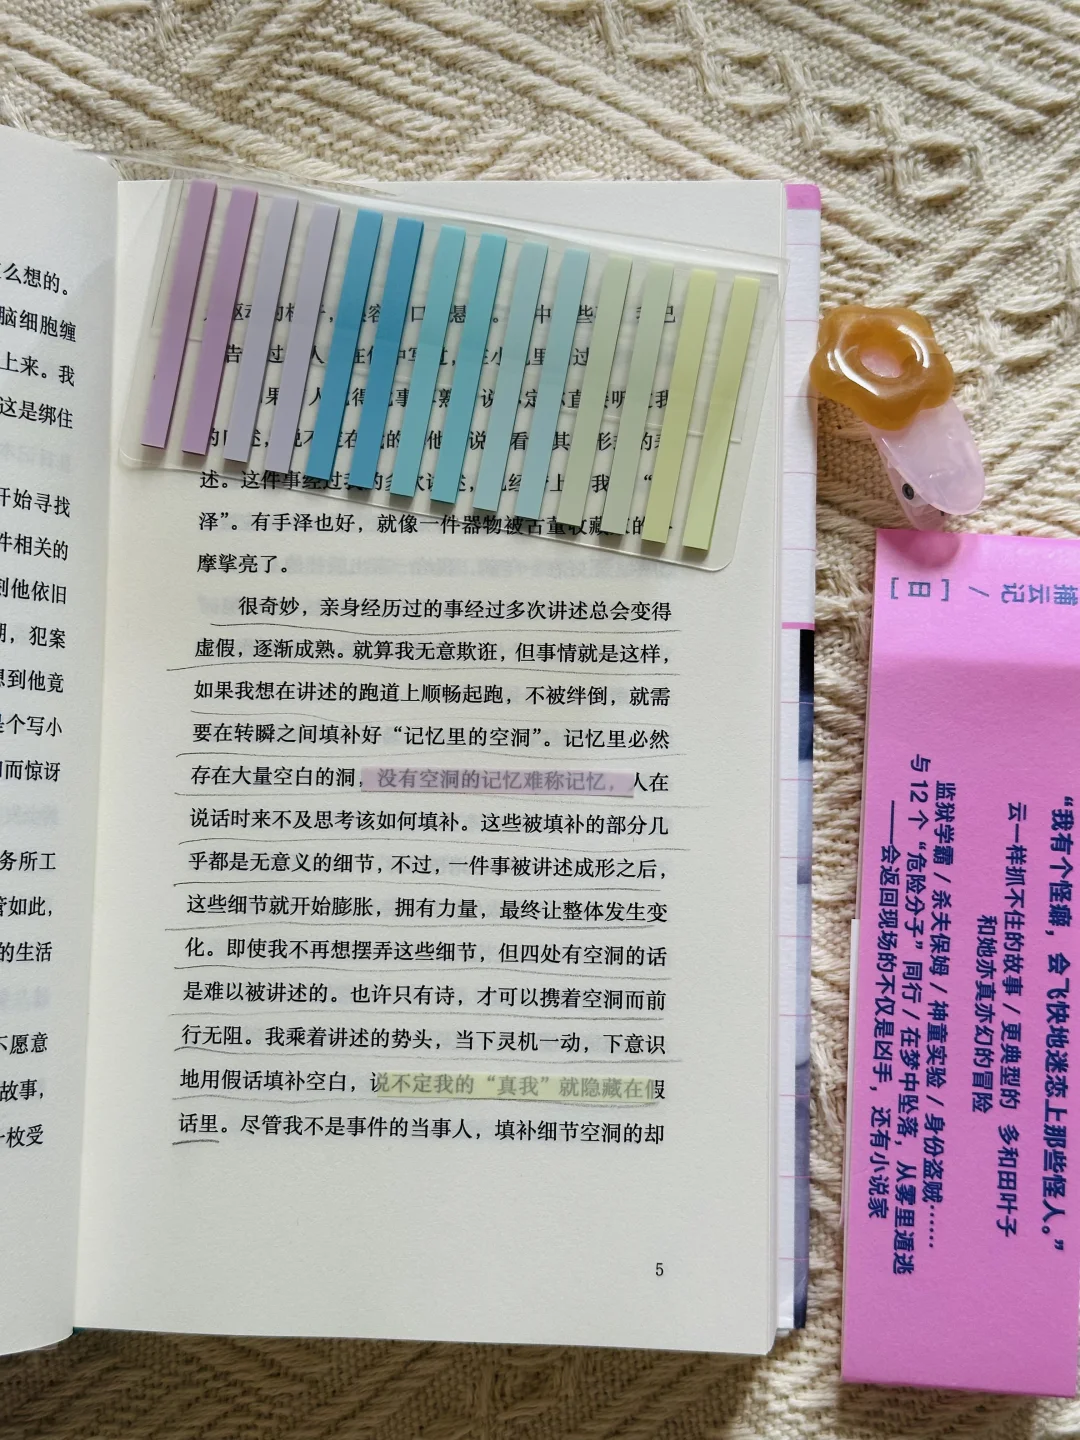 么想的。
脑细胞缠
上来。我
这是绑住
开始寻找
件相关的
到他依旧
期，犯案
想到他竟
是个写小
而惊讶
务所工
管如此，
的生活
不愿意
故事，
一枚受
述。这件事经过我的多次讲述，
泽”。有手泽也好，就像一件器物被古董收藏
摩挲亮了。
很奇妙，亲身经历过的事经过多次讲述总会变得
虚假，逐渐成熟。就算我无意欺诳，但事情就是这样，
如果我想在讲述的跑道上顺畅起跑，不被绊倒，就需
要在转瞬之间填补好“记忆里的空洞”。记忆里必然
存在大量空白的洞，没有空洞的记忆难称记忆，人在
说话时来不及思考该如何填补。这些被填补的部分几
乎都是无意义的细节，不过，一件事被讲述成形之后，
这些细节就开始膨胀，拥有力量，最终让整体发生变
化。即使我不再想摆弄这些细节，但四处有空洞的话
是难以被讲述的。也许只有诗，才可以携着空洞而前
行无阻。我乘着讲述的势头，当下灵机一动，下意识
地用假话填补空白，说不定我的“真我”就隐藏在假
话里。尽管我不是事件的当事人，填补细节空洞的却
5
捕云记 / [日]
“我有个怪癖，会飞快地迷恋上那些怪人。”
云一样抓不住的故事 / 更典型的 多和田叶子
和她亦真亦幻的冒险
监狱学霸 / 杀夫保姆 / 神童实验 / 身份盗贼……
与12个“危险分子”同行 / 在梦中坠落，从雾里遁逃
——会返回现场的不仅是凶手，还有小说家